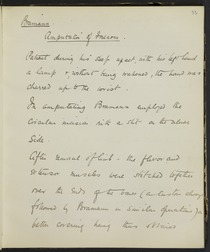 Bramann
Amputation of Forearm.
Patient during his sleep upset, with his left hand
a lamp & without being wakened, the hand was
charred up to the wrist.
In amputating Bramann employed the
circular incision with a slit on the ulnar
side.
After removal of limb - the flexor and
extensor muscles were stitched together
over the ends of the bones (a
followed by Bramann in similar operations for
better covering being thus obtained